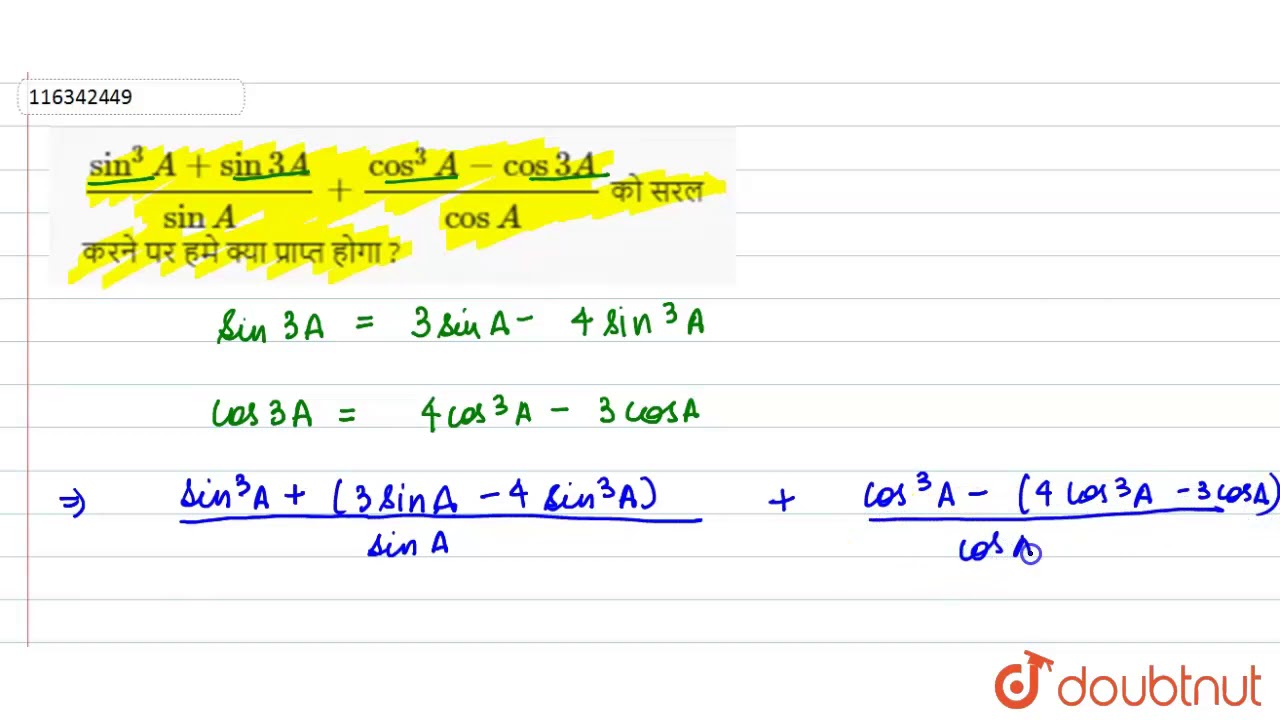 116342449
\frac{\sin^3 A + \sin 3A}{\sin A} + \frac{\cos^3 A - \cos 3A}{\cos A} को सरल
करने पर हमे क्या प्राप्त होगा ?
sin 3A = 3 sin A - 4 sin³A
cos 3A = 4 cos³A - 3 cos A
⇒ \frac{sin³A + (3 sin A - 4 sin³A)}{sin A} + \frac{cos³A - (4 cos³A - 3 cos A)}{cos A}
doubtnut